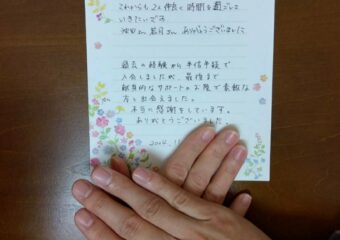 これからも2人仲良く時間を過ごして
いきたいです。
さん ありがとうございました
過去の経験から半信半疑で
入会しましたが、最後まで
献身的なサポートのお陰で素敵な
方と出会えました。
本当に感謝をしています。
ありがとうございました。
2014.11